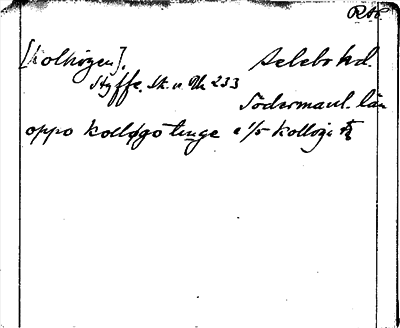 [Kolhögen],
Selebo hd.
Styffe. Sk. u. Un. 233
Södermanl. län
oppo kolløgo tinge e 1/5 kolløgi